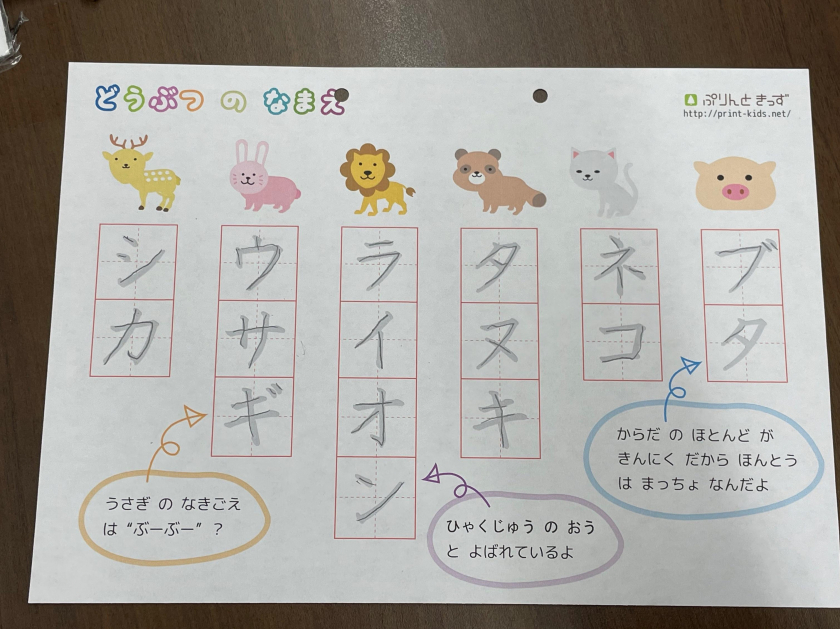 どうぶつ の なまえ
ぷりんと きっず
http://print-kids.net/
シカ
ウサギ
ライオン
タヌキ
ネコ
ブタ
うさぎ の なきごえ
は “ぶーぶー” ?
ひゃくじゅう の おう
と よばれているよ
からだ の ほとんど が
きんにく だから ほんとう
は まっちょ なんだよ